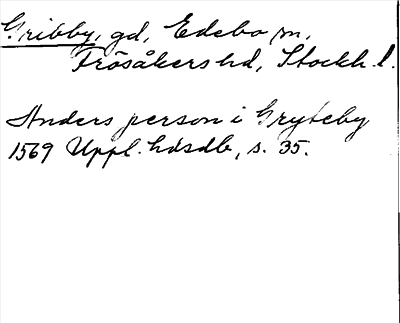 Gribby, gd, Edebo sn,
Frösåkers hd, Stockh. l.
Anders person i Gryteby
1569 Uppl. hdsdb, s. 35.